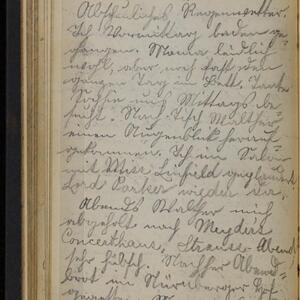 Abscheuliches Regenwetter.
Ich Vormittag baden ge-
gangen. Mama leidlich
wohl, aber noch fast den
ganzen Tag im Bett. Tante
uns Mittags be-
sucht. Nach Tisch Walther
einen Augenblick herauf-
gekommen. Ich im Salon
mit Miss Linfield geplaudert
Lord Parker wieder da.
Abends Walther mich
abgeholt nach Meyders
Concerthaus, Strauss-Abend
sehr hübsch. Nachher Abend-
brot im Nürnberger Hof